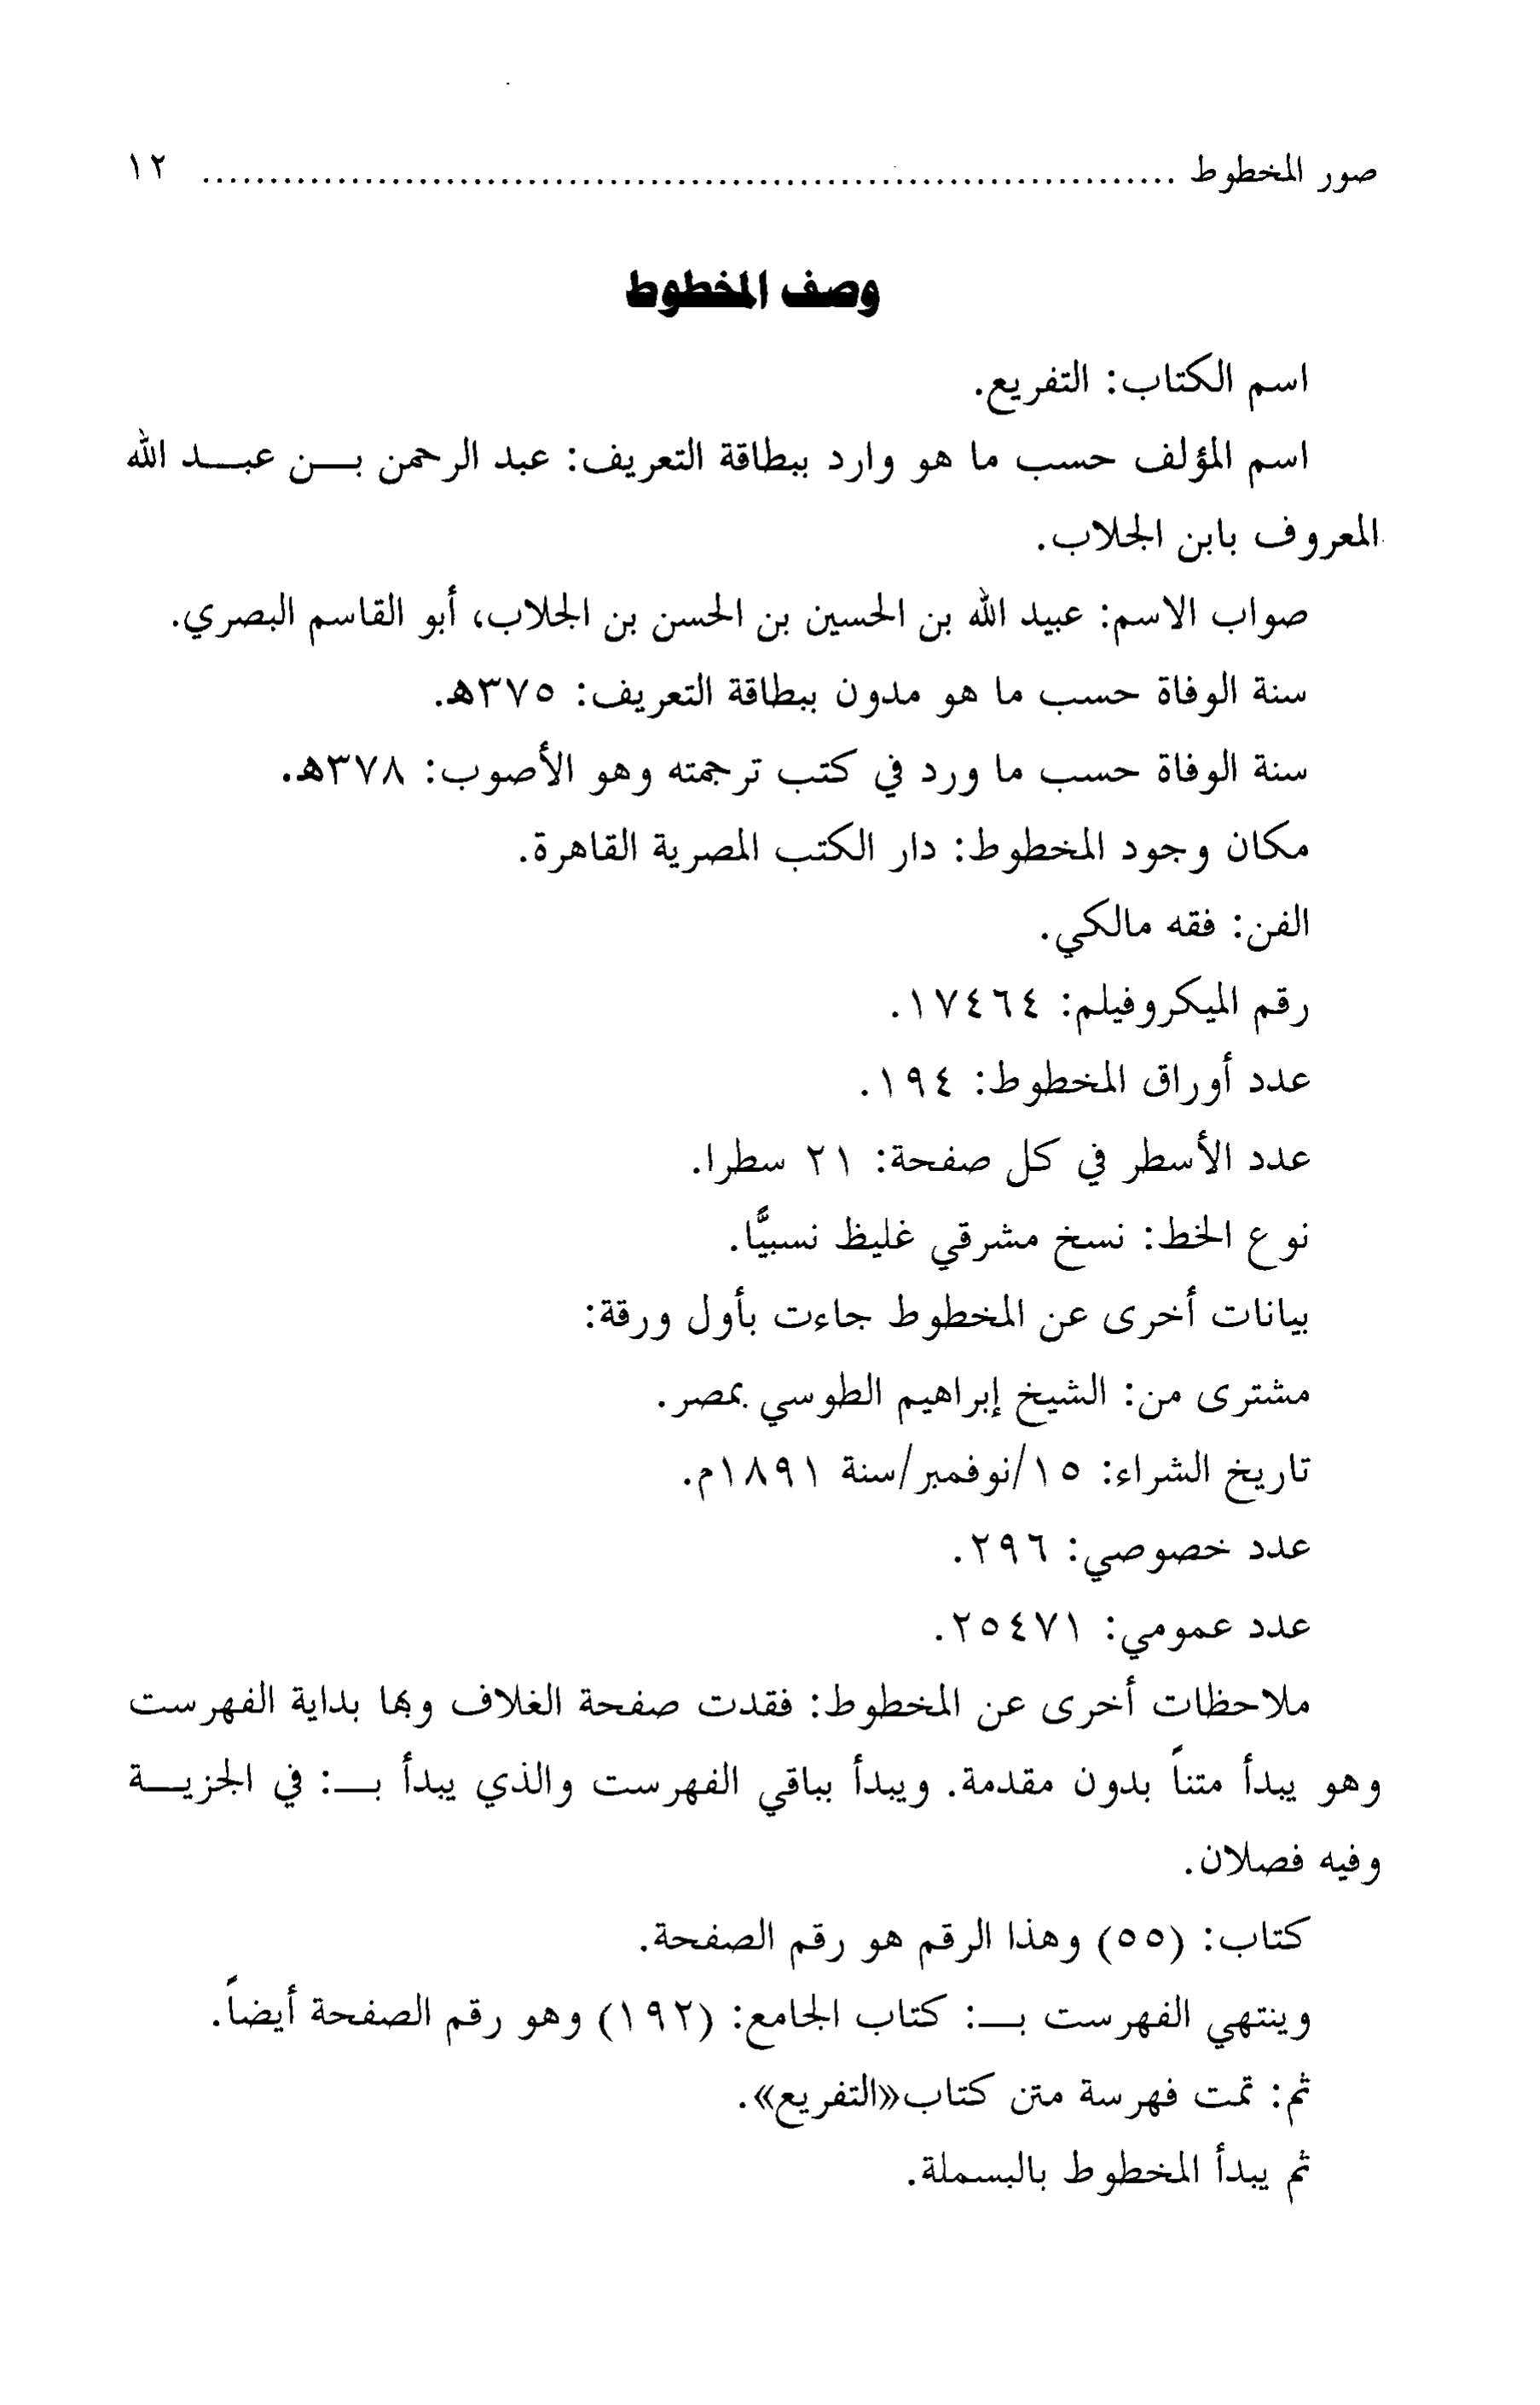 صور المخطوط ........................................................................ ١٢
وصف المخطوط
اسم الكتاب: التفريع.
اسم المؤلف حسب ما هو وارد ببطاقة التعريف: عبد الرحمن بـــن عبـــد الله
المعروف بابن الجلاب.
صواب الاسم: عبيد الله بن الحسين بن الحسن بن الجلاب، أبو القاسم البصري.
سنة الوفاة حسب ما هو مدون ببطاقة التعريف: ٣٧٥هـ.
سنة الوفاة حسب ما ورد في كتب ترجمته وهو الأصوب: ٣٧٨هـ.
مكان وجود المخطوط: دار الكتب المصرية القاهرة.
الفن: فقه مالكي.
رقم الميكروفيلم: ١٧٤٦٤.
عدد أوراق المخطوط: ١٩٤.
عدد الأسطر في كل صفحة: ٢١ سطرا.
نوع الخط: نسخ مشرقي غليظ نسبيًّا.
بيانات أخرى عن المخطوط جاءت بأول ورقة:
مشترى من: الشيخ إبراهيم الطوسي بمصر.
تاريخ الشراء: ١٥/نوفمبر/سنة ١٨٩١م.
عدد خصوصي: ٢٩٦.
عدد عمومي: ٢٥٤٧١.
ملاحظات أخرى عن المخطوط: فقدت صفحة الغلاف وبها بداية الفهرست
وهو يبدأ متناً بدون مقدمة. ويبدأ بباقي الفهرست والذي يبدأ بـــ: في الجزيـــة
وفيه فصلان.
كتاب: (٥٥) وهذا الرقم هو رقم الصفحة.
وينتهي الفهرست بـــ: كتاب الجامع: (١٩٢) وهو رقم الصفحة أيضاً.
ثم: تمت فهرسة متن كتاب«التفريع».
ثم يبدأ المخطوط بالبسملة.